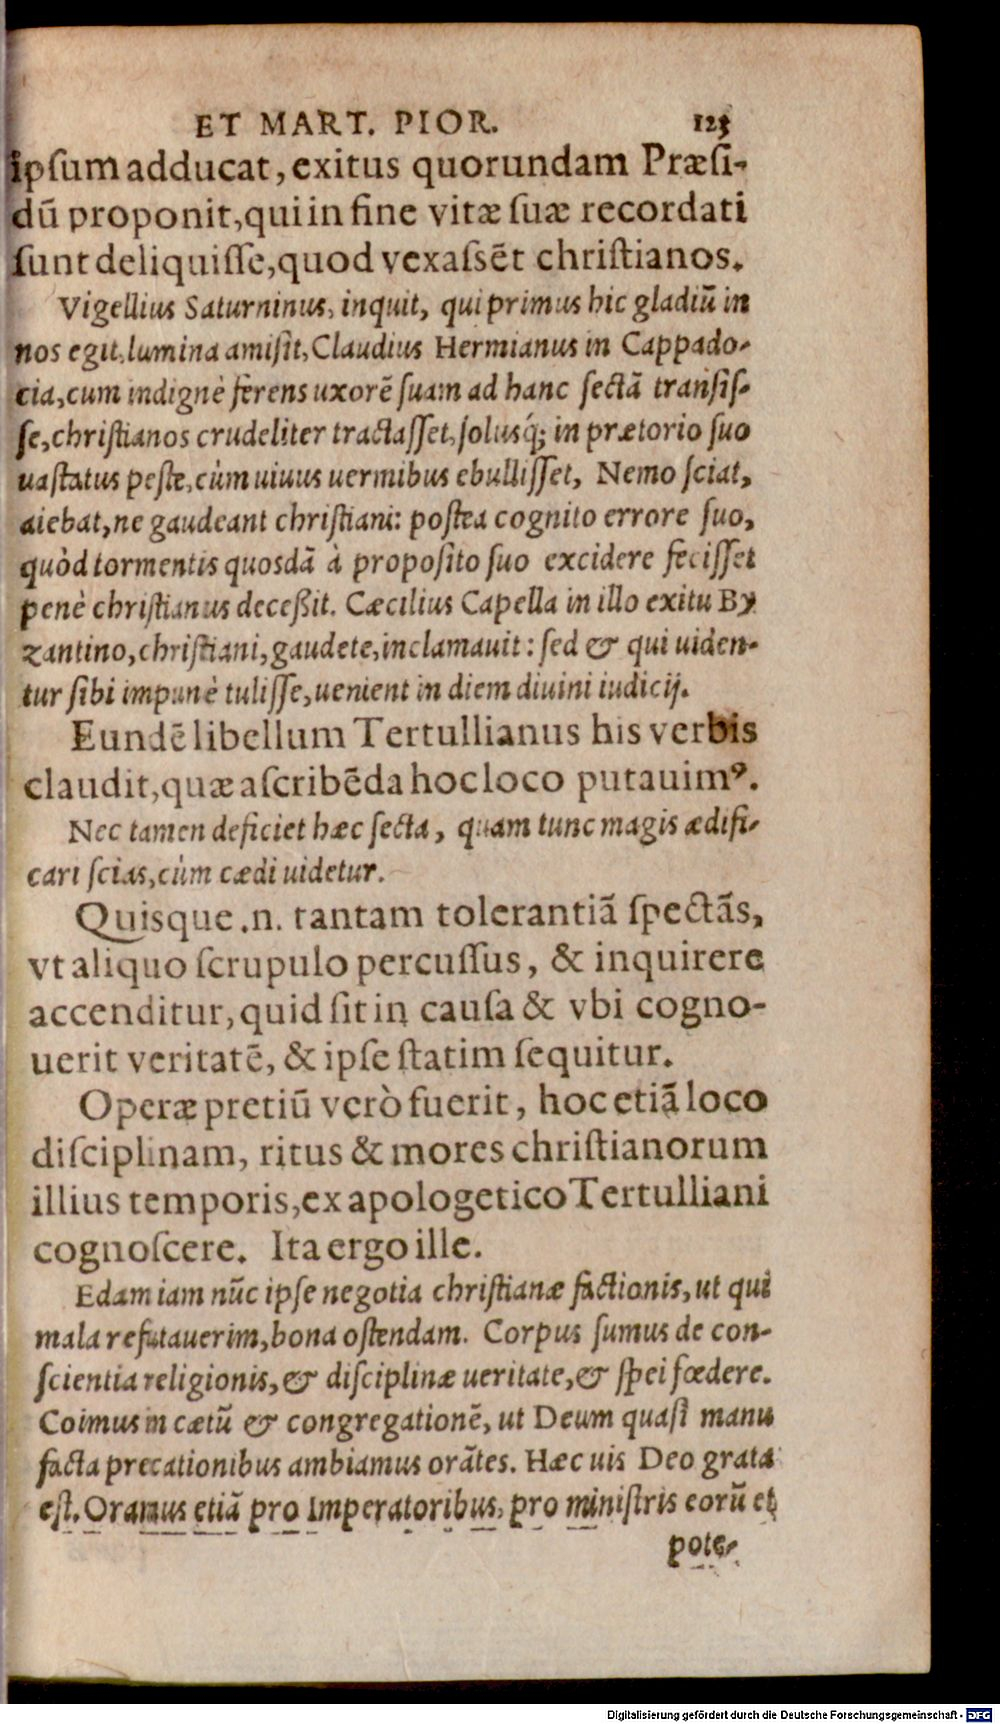 ET MART. PIOR. 123
ipſum adducat, exitus quorundam Præſi-
dũ proponit, qui in fine vitæ ſuæ recordati
ſunt deliquiſſe, quod vexaſsẽt chriſtianos.
Vigellius Saturninus, inquit, qui primus hic gladiũ in
nos egit, lumina amiſit, Claudius Hermianus in Cappado-
cia, cum indignè ferens uxorẽ ſuam ad hanc ſectã tranſiſ-
ſe, chriſtianos crudeliter tractaſſet, ſolusq́; in prætorio ſuo
uaſtatus peſte, cùm uiuus uermibus ebulliſſet, Nemo ſciat,
aiebat, ne gaudeant chriſtiani: poſtea cognito errore ſuo,
quòd tormentis quosdã à propoſito ſuo excidere feciſſet
penè chriſtianus deceßit. Cæcilius Capella in illo exitu By
zantino, chriſtiani, gaudete, inclamauit: ſed & qui uiden-
tur ſibi impunè tuliſſe, uenient in diem diuini iudicij.
Eundẽ libellum Tertullianus his verbis
claudit, quæ aſcribẽda hoc loco putauimꝰ.
Nec tamen deficiet hæc ſecta, quam tunc magis ædifi-
cari ſcias, cùm cædi uidetur.
Quisque .n. tantam tolerantiã ſpectãs,
vt aliquo ſcrupulo percuſſus, & inquirere
accenditur, quid ſit in cauſa & vbi cogno-
uerit veritatẽ, & ipſe ſtatim ſequitur.
Operæ pretiũ verò fuerit, hoc etiã loco
diſciplinam, ritus & mores chriſtianorum
illius temporis, ex apologetico Tertulliani
cognoſcere. Ita ergo ille.
Edam iam nũc ipſe negotia chriſtianæ factionis, ut qui
mala refutauerim, bona oſtendam. Corpus ſumus de con-
ſcientia religionis, & diſciplinæ ueritate, & ſpei fœdere.
Coimus in cætũ & congregationẽ, ut Deum quaſi manu
facta precationibus ambiamus orãtes. Hæc uis Deo grata
eſt. Oramus etiã pro Imperatoribus, pro miniſtris eorũ et
pote-
Digitalisierung gefördert durch die Deutsche Forschungsgemeinschaft - DFG